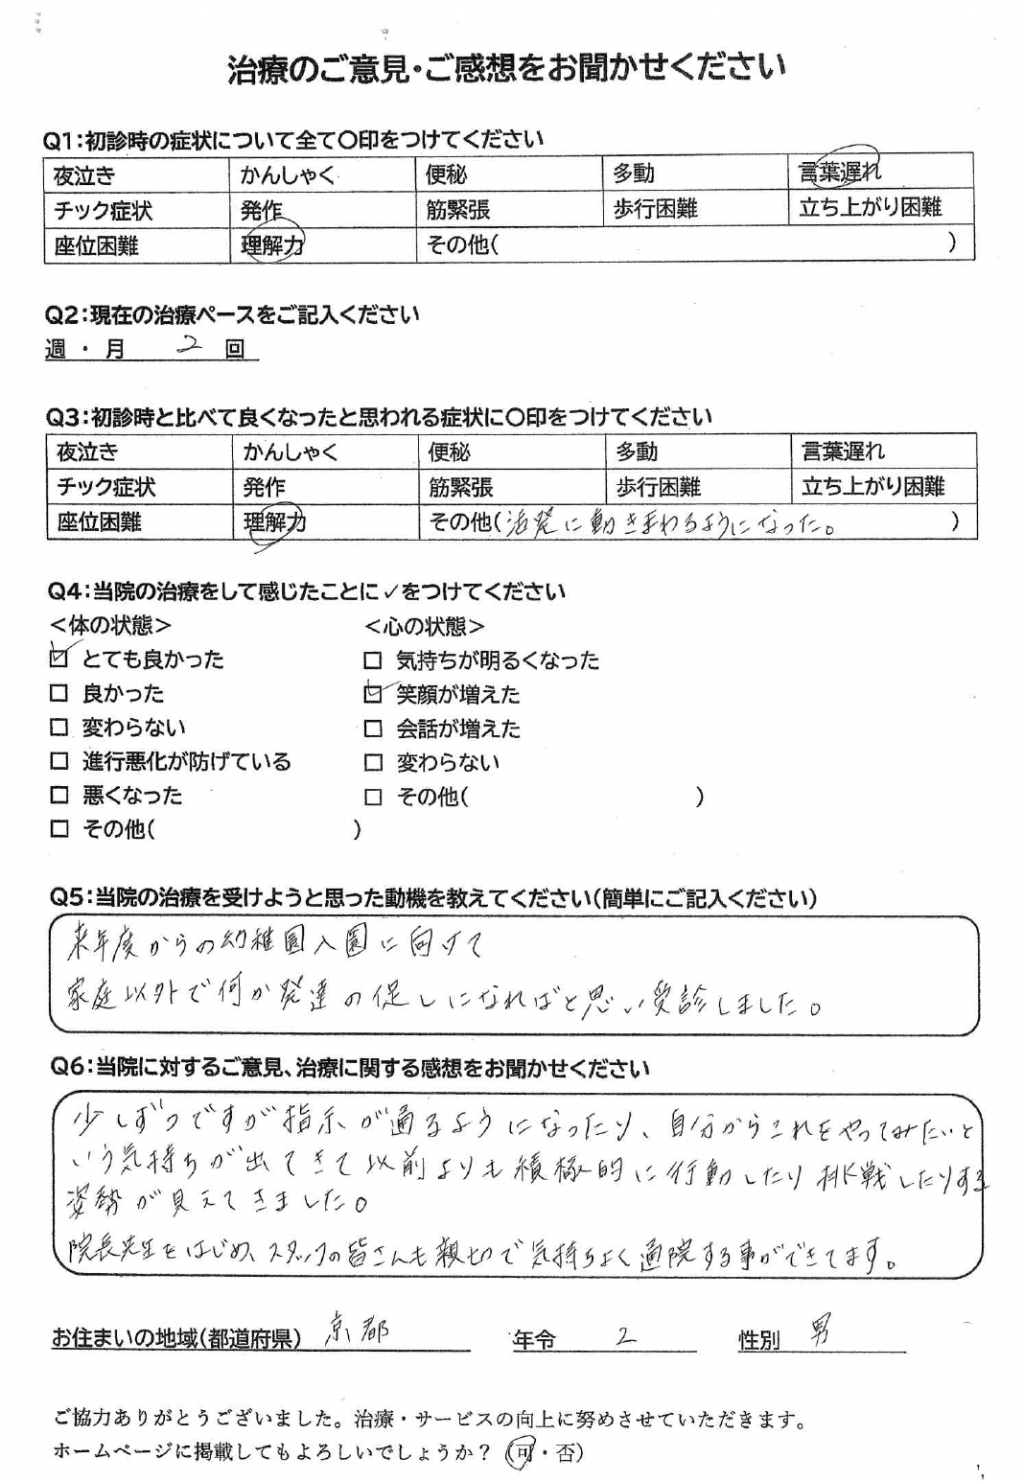 治療のご意見・ご感想をお聞かせください
Q1:初診時の症状について全て〇印をつけてください
夜泣き かんしゃく 便秘 多動 言葉遅れ
チック症状 発作 筋緊張 歩行困難 立ち上がり困難
座位困難 理解力 その他( )
Q2:現在の治療ペースをご記入ください
週・月 2 回
Q3:初診時と比べて良くなったと思われる症状に〇印をつけてください
夜泣き かんしゃく 便秘 多動 言葉遅れ
チック症状 発作 筋緊張 歩行困難 立ち上がり困難
座位困難 理解力 その他(活発に動きまわるようになった。 )
Q4:当院の治療をして感じたことに✓をつけてください
<体の状態> <心の状態>
☑ とても良かった □ 気持ちが明るくなった
□ 良かった ☑ 笑顔が増えた
□ 変わらない □ 会話が増えた
□ 進行悪化が防げている □ 変わらない
□ 悪くなった □ その他( )
□ その他( )
Q5:当院の治療を受けようと思った動機を教えてください(簡単にご記入ください)
来年度からの幼稚園入園に向けて
家庭以外で何か発達の促しになればと思い受診しました。
Q6:当院に対するご意見、治療に関する感想をお聞かせください
少しずつですが指示が通るようになったり、自分からこれをやってみたいと
いう気持ちが出てきて以前よりも積極的に行動したり挑戦したりする
姿勢が見えてきました。
院長先生をはじめ、スタッフの皆さんも親切で気持ちよく通院する事ができてます。
お住まいの地域(都道府県) 京都 年令 2 性別 男
ご協力ありがとうございました。治療・サービスの向上に努めさせていただきます。
ホームページに掲載してもよろしいでしょうか? (可・否)